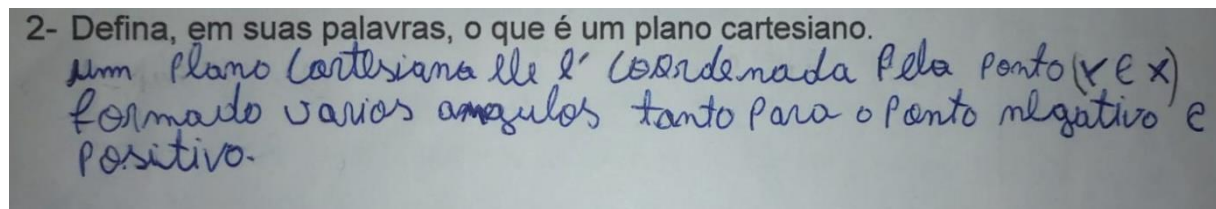 2- Defina, em suas palavras, o que é um plano cartesiano.
um plano Cartesiana ele é coordenada pela ponto (Y E X)
formado varios amgulos tanto para o ponto negativo e
positivo.